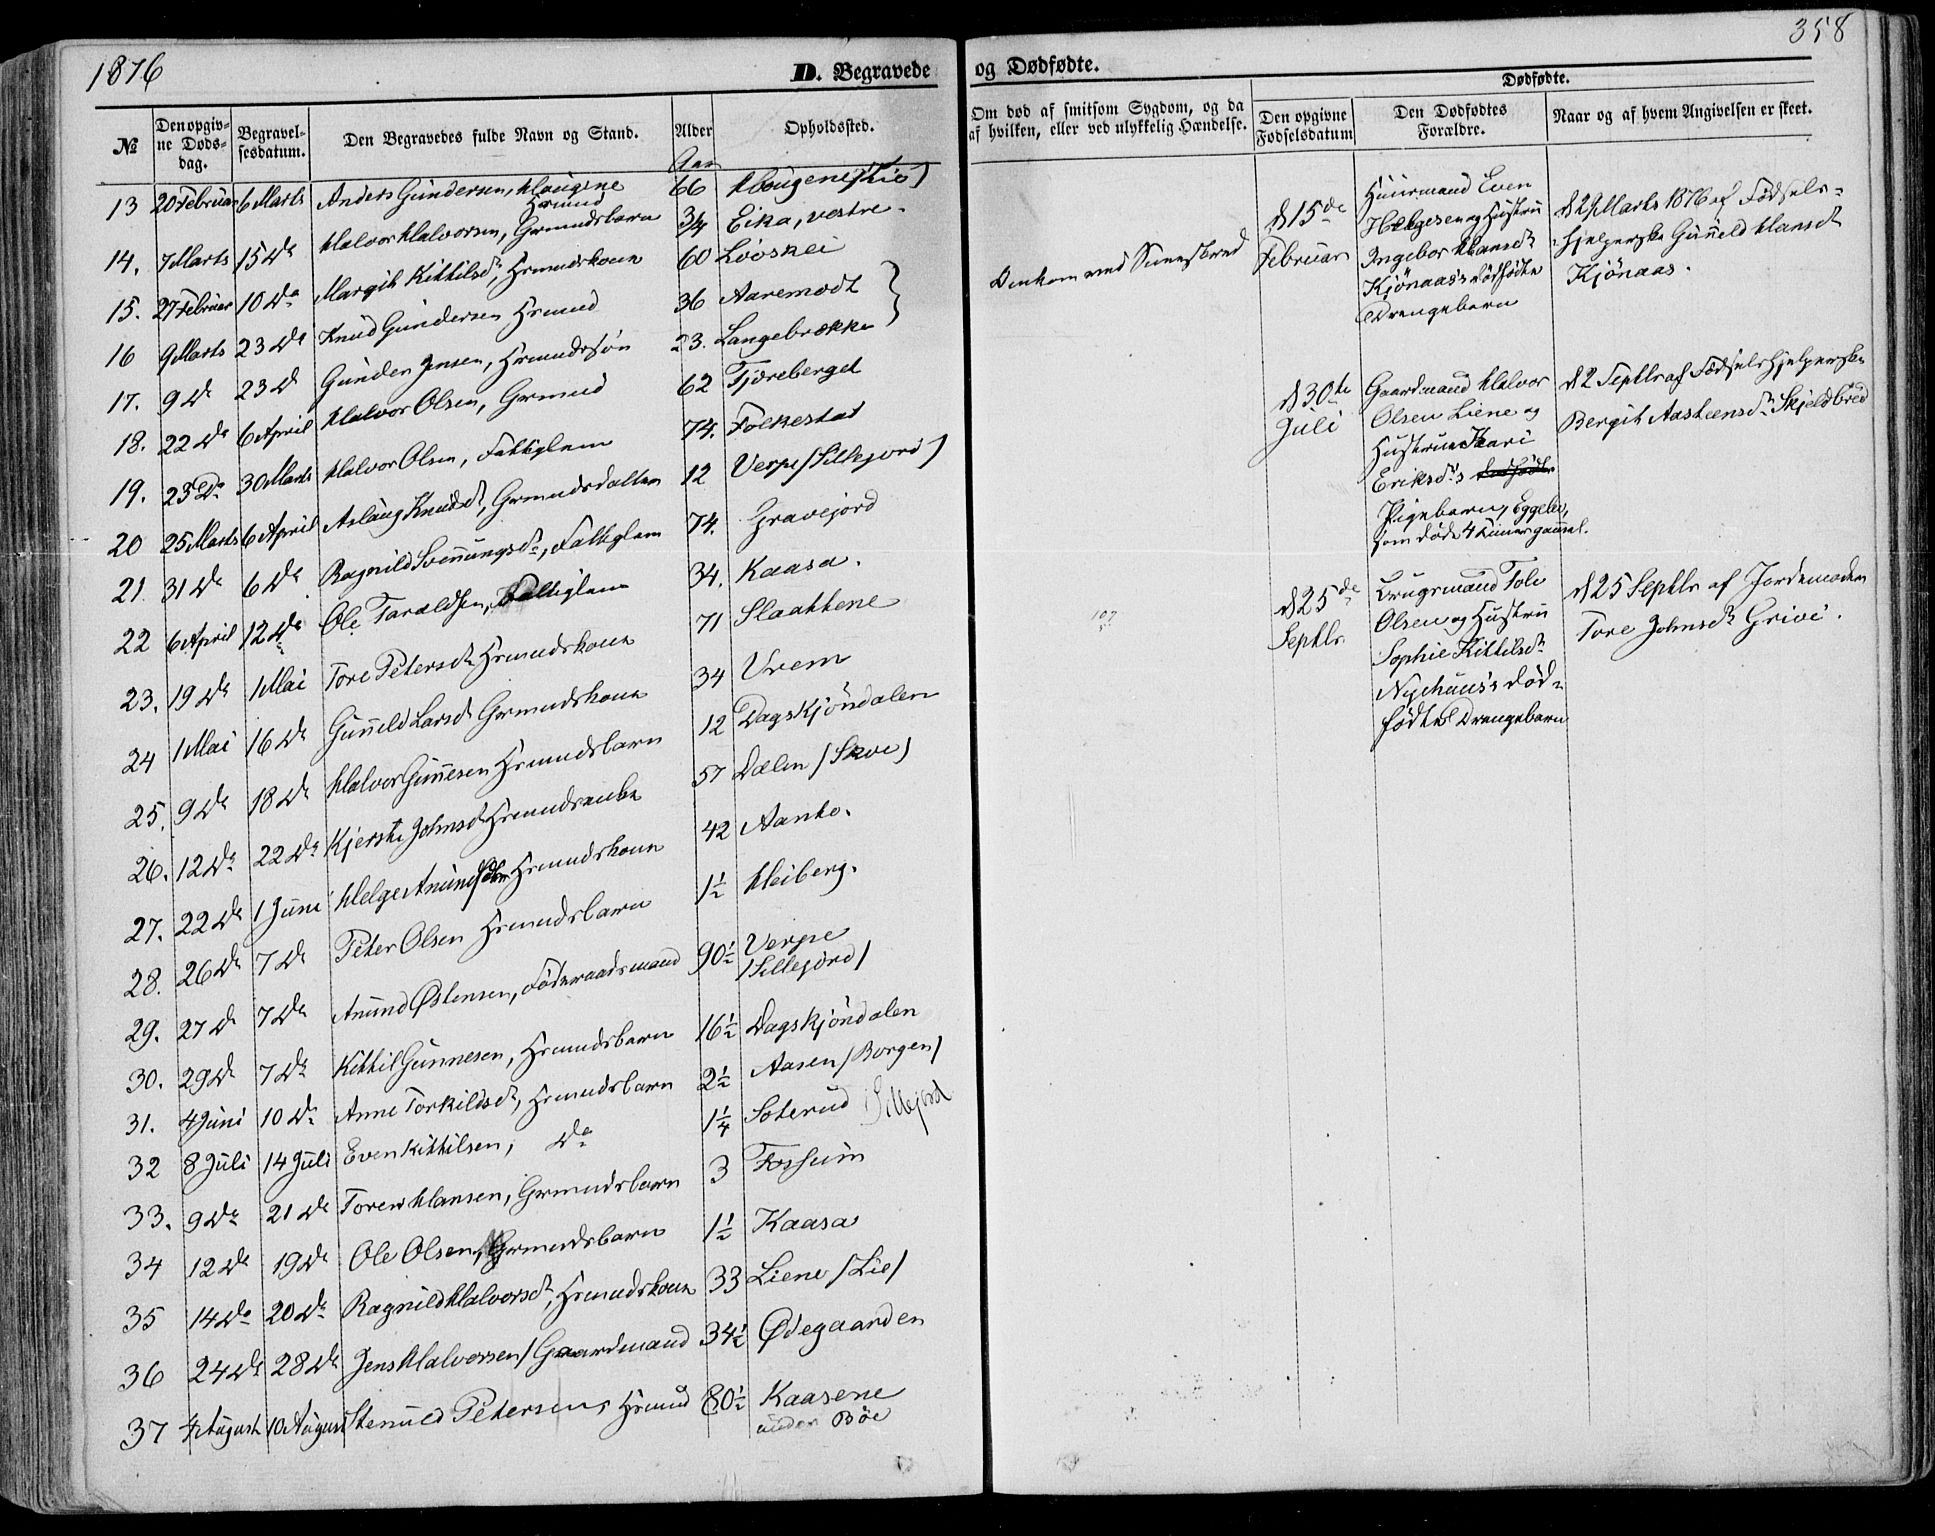 1876
D. Begravede
№
Den opgiv-
ne Døds-
dag.
Begravel-
sesdatum.
Den Begravedes fulde Navn og Stand.
Alder
Opholdssted.
Aar
13 20 Februar 6 Marts Anders Gundersen, Haugene 66 Haugene /Lie/
Hrmnd
14. 7 Marts 15 Do Halvor Halvorsen, Grmndsbarn 3/4 Eika, vestre.
15. 27 Februar 10 Do Margit Kittilsd., Hrmndskone 60 Lööskei
16 9 Marts 23 Do Knud Gundersen Hrmnd 36 Aaremodt
17. 9 Do 23 D Gunder Jensen, Hrmndssøn 23. Langebrække
18. 22 Do 6 April Halvor Olsen, Grmnd 62 Tjæreberget
19. 23 Do 30 Marts Halvor Olsen, Fattiglem 74. Folkestad
20 25 Marts 6 April Aslaug Knudsd., Grmndsdatter 12 Verpe /Sillejord/
21. 31 Do 6 Do Ragnild Svennungsd., Fattiglem 74. Gravejord
22 6 April 12 Do Ole Taraldsen, Fattiglem 34. Kaasa.
23. 19 Do 1 Mai Tore Petersd. Hrmndskone 71 Slaattene
24 1 Mai 16 Do Gunneld Larsd. Grmndskone 34 Vrem
25. 9 Do 18 Do Halvor Gunnesen Hrmndsbarn 12 Dagskjöndalen
26. 12 Do 22 Do Kjersti Johnsd. Hrmndsenke 57 Dælen /Skoe/
27. 22 Do 1 Juni Helge Anund Hrmndskone 42 Aanko.
28. 26 Do 7 Do Peter Olsen Hrmndsbarn 1½ Heiberg.
29. 27 D 7 Do Anund Østensen, Föderaadsmand 90½ Verpe
/Sillejord/
30. 29 Do 7 Do Kittil Gunnesen, Hrmndsbarn 16½ Dagskjöndalen
31. 4 Juni 10 Do Anne Torkildsd., Hrmndsbarn 2½ Aasen /Borgen/
32 8 Juli 14 Juli Even Kittilsen, Do 1¼ Soterud Sillejord
33. 9 Do 21 Do Toren Hansen, Grmndsbarn 3 Fossum
34 12 Do 19 Do Ole Olsen, Grmndsbarn 1½ Kaasa
35 14 Do 20 Do Ragnild Halvorsd., Hrmndskone 33 Liene /Lie/
36 24 Do 28 Do Jens Halvorsen / Gaardmand 34½ Ødegaarden
37 4 August 10 August Stenuld Petersen, Hrmnd 80½ Kaasene
under Böe
358
og Dødfødte.
Om død af smitsom Sygdom, og da
af hvilken, eller ved ulykkelig Hændelse.
Dødfødte.
Den opgivne
Fødselsdatum
Den Dødfødtes
Forældre.
Naar og af hvem Angivelsen er skeet.
d 15de
Februar
Huusmand Even
Helgesen og Hustru
Ingebor Hansd.
Kjönaas's dödfödte
Drengebarn
d 29 Marts 1876 af Födsels-
hjelperske Gunneld Hansd.
Kjönaas.
d 30te
Juli
Gaardmand Halvor
Olsen Liene og
Hustrue Kari
Eriksd.'s dödfödte
Pigebarn, Eggeler,
som döde 4 Timer gammel.
d 2 Septbr af Födselshjelperske
Bergit Aasteensd. Skjeldbred
d 25de
Septbr
Brugsmand Tole
Olsen og Hustru
Sophie Kittilsd.
Nyehuus's död-
födte Drengebarn
d 25 Septbr af Jordemoder
Tore Johnsd. Grivi.